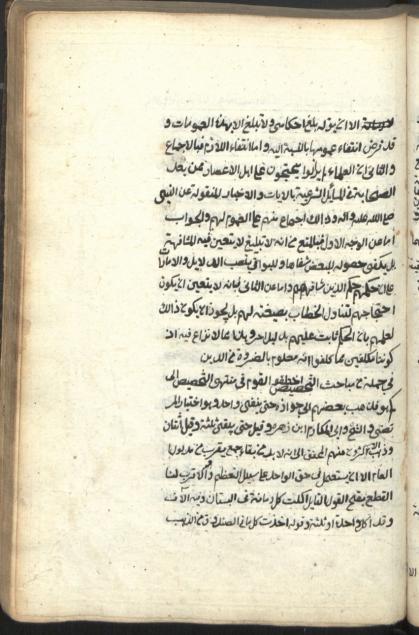 الا ان يقول بلغ احكامي ولا تبليغ الا بهذه العمومات و
قد فرض انتفاء عمومها بالنسبة اليه واما انتفاء اللازم فبالاجماع
والثاني ان العلماء لم يزالوا يحتجون على اهل الاعصار ممن بعد
الصحابة في المسايل الشرعية بالايات والاخبار المنقولة عن النبي
صلى الله عليه واله وذلك اجماع منهم على العموم لهم والجواب
اما عن الوجه الاول فبالمنع من انه لا تبليغ لا يتعين فيه المشافهة
بل يكفي حصوله للبعض شفاها وللبواقي بنصب الدلايل والامارات
على ان حكمهم حكم الذين شافههم واما عن الثاني فبانه لا يتعين ان يكون
احتجاجهم لتناول الخطاب بصيغته لهم بل يجوز ان يكون ذلك
لعلمهم بان الحكم ثابت عليهم بدليل اخر وهذا مما لا نزاع فيه اذ
كوننا مكلفين بما كلفوا انه معلوم بالضرورة من الدين
في جملة من مباحث التخصيص اختلف القوم في منتهى التخصيص الى
كم هو فذهب بعضهم الى جوازه حتى يبقى واحد وهو اختيار المر
تضى والشيخ وابي المكارم ابن زهرة وقيل حتى يبقى ثلثة وقيل اثنان
وذهب الاكثر ومنهم المحقق الى انه لا بد من بقاء جمع يقرب من مدلول
العام الا ان يستعمل في حق الواحد على سبيل التعظيم وهو الاقرب لنا
القطع بقبح القول القايل اكلت كل رمانة في البستان وفيه الاف
وقد اكل واحدة او ثلثة وقوله اخذت كل ما في الصندوق من الذهب